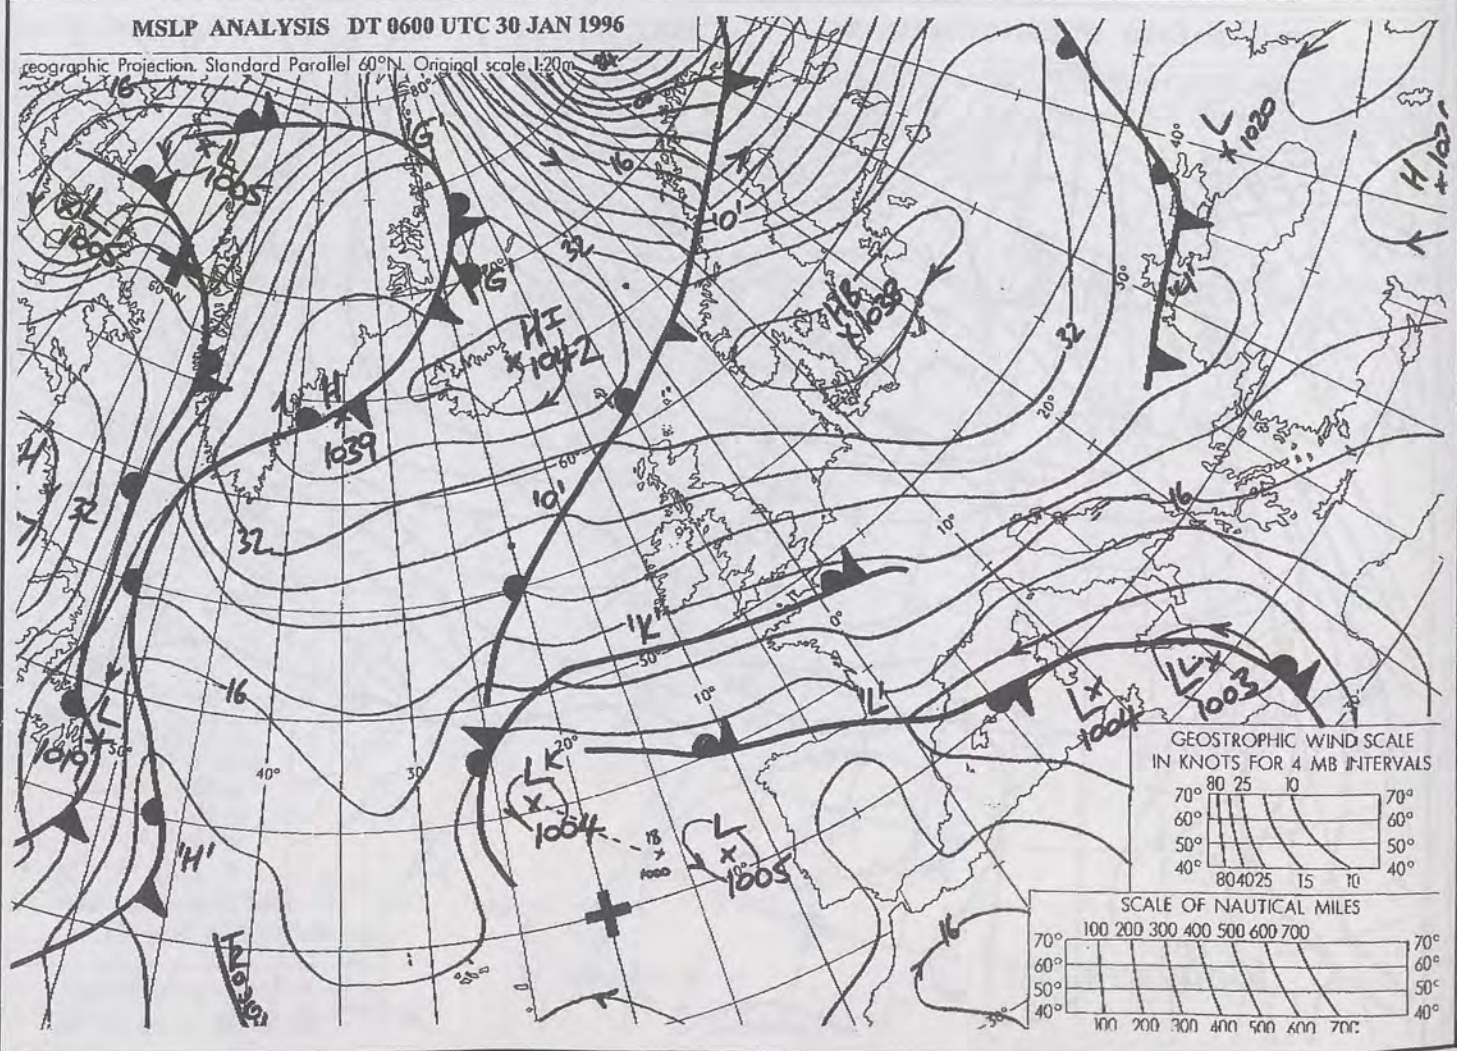 MSLP ANALYSIS DT 0600 UTC 30 JAN 1996
eographic Projection. Standard Parallel 60°N. Original scale 1:20m
16
80°
'G'
L
1005
L
1005
16
'O'
L
1020
40°
H
32
60°N
'G'
HI
1042
HB
1038
30°
32
H
1039
20°
32
60°
'O'
32
16
10°
'K'
50°
0°
16
10°
'L'
L
1004
LV
1003
L
1019
50°
40°
30
20°
LK
1004
18
1000
L
1005
40°
'H'
16
30°
GEOSTROPHIC WIND SCALE
IN KNOTS FOR 4 MB INTERVALS
80 25 10
70° 70°
60° 60°
50° 50°
40° 40°
80 40 25 15 10
SCALE OF NAUTICAL MILES
100 200 300 400 500 600 700
70° 70°
60° 60°
50° 50°
40° 40°
100 200 300 400 500 600 700